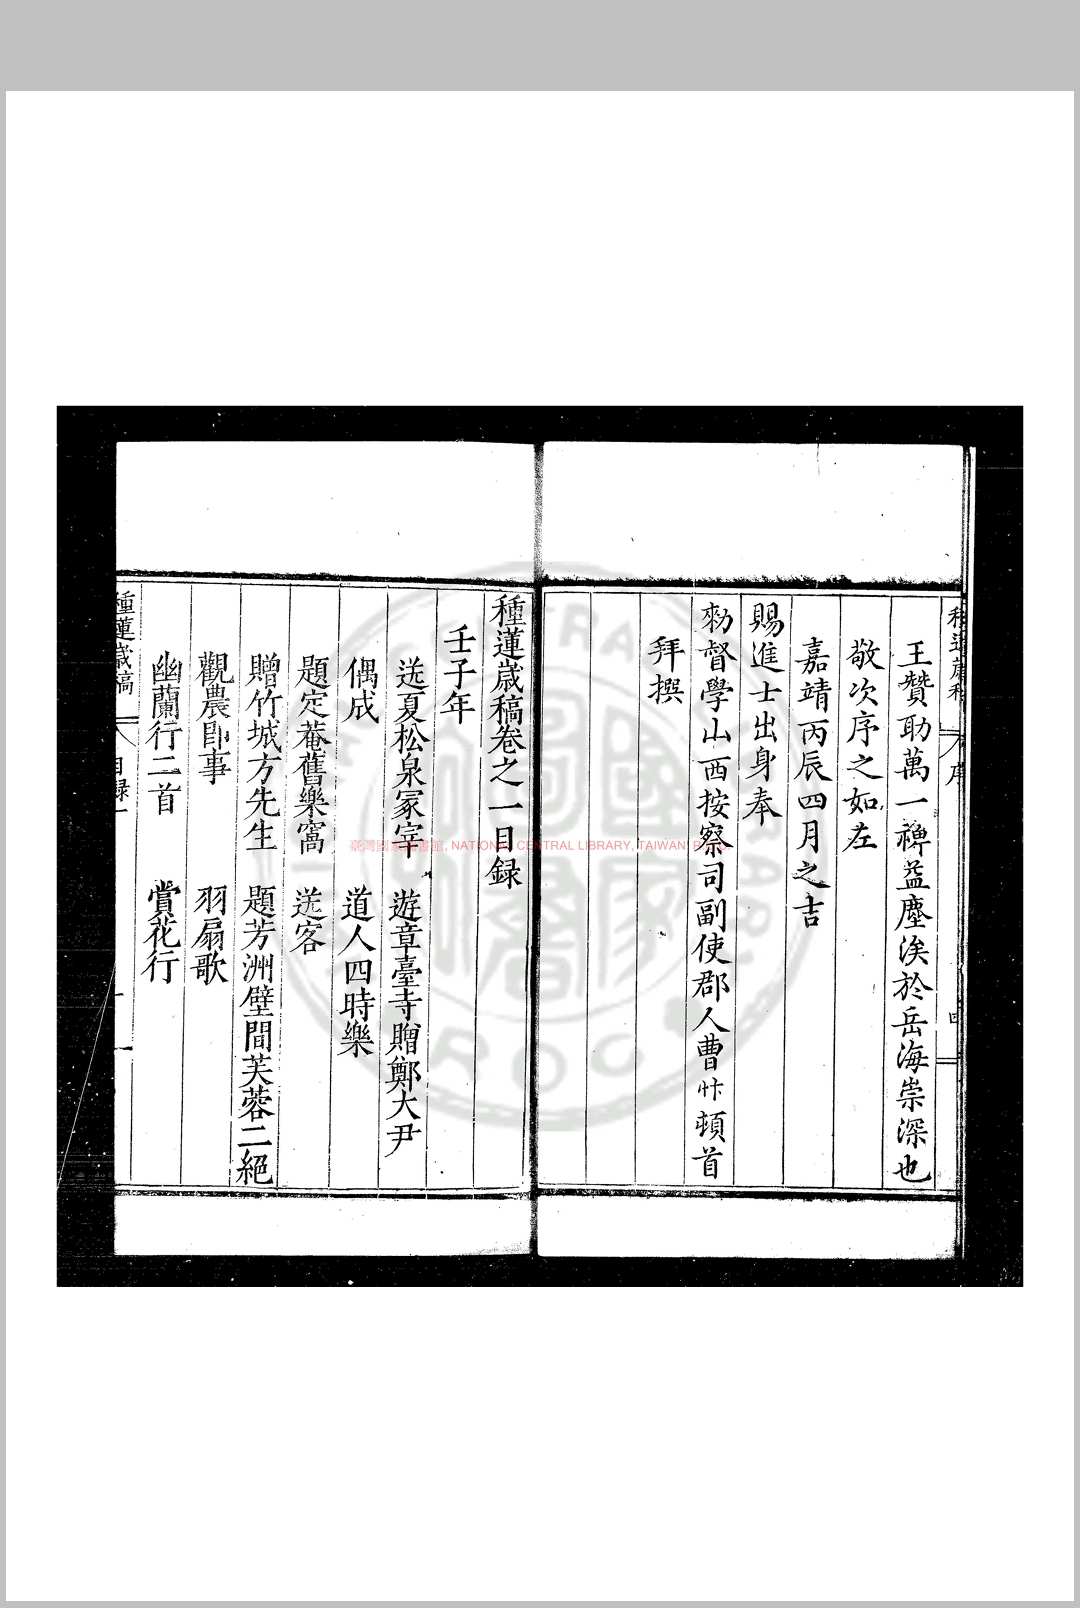 種蓮歲稿
序
四
王贊助萬一裨益塵涘於岳海崇深也
敬次序之如左
嘉靖丙辰四月之吉
賜進士出身奉
勑督學山西按察司副使郡人曹忭頓首
拜撰
種蓮歲稿卷之一目録
壬子年
送夏松泉冢宰 遊章臺寺贈鄭大尹
偶成 道人四時樂
題定菴舊樂窩 送客
贈竹城方先生 題芳洲壁間芙蓉二絕
觀農即事 羽扇歌
幽蘭行二首 賞花行
種蓮歲稿
目録
一
臺灣國家圖書館, NATIONAL CENTRAL LIBRARY, TAIWAN